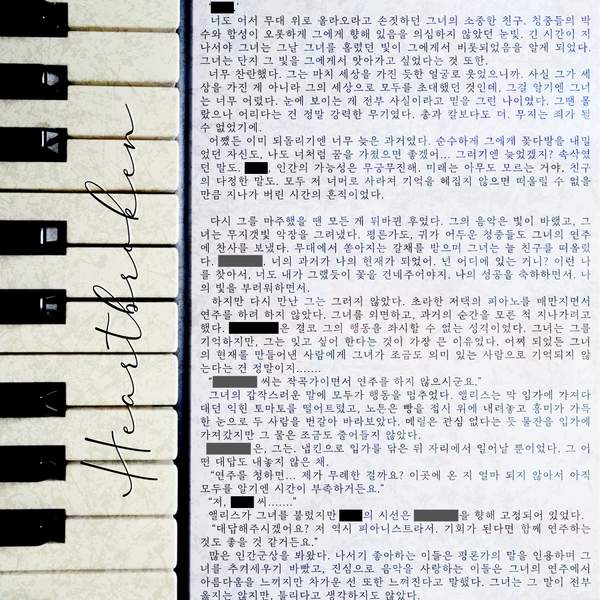 Heartbroken
'
너도 어서 무대 위로 올라오라고 손짓하던 그녀의 소중한 친구. 청중들의 박
수와 함성이 오롯하게 그에게 향해 있음을 의심하지 않았던 눈빛. 긴 시간이 지
나서야 그녀는 그날 그녀를 홀렸던 빛이 그에게서 비롯되었음을 알게 되었다.
그녀는 단지 그 빛을 그에게서 앗아가고 싶었다는 것 또한.
너무 찬란했다. 그는 마치 세상을 가진 듯한 얼굴로 웃었으니까. 사실 그가 세
상을 가진 게 아니라 그의 세상으로 모두를 초대했던 것인데, 그걸 알기엔 그녀
는 너무 어렸다. 눈에 보이는 게 전부 사실이라고 믿을 그런 나이였다. 그땐 몰
랐으나 어리다는 건 정말 강력한 무기였다. 총과 칼보다도 더. 무지는 죄가 될
수 없었기에.
어쨌든 이미 되돌리기엔 너무 늦은 과거였다. 순수하게 그에게 꽃다발을 내밀
었던 자신도, 나도 너처럼 꿈을 가졌으면 좋겠어... 그러기엔 늦었겠지? 속삭였
던 말도. , 인간의 가능성은 무궁무진해. 미래는 아무도 모르는 거야, 친구
의 다정한 말도. 모두 저 너머로 사라져 기억을 헤집지 않으면 떠올릴 수 없을
만큼 지나가 버린 시간의 흔적이었다.
다시 그를 마주했을 땐 모든 게 뒤바뀐 후였다. 그의 음악은 빛이 바랬고, 그
녀는 무지갯빛 악장을 그려냈다. 평론가도, 귀가 어두운 청중들도 그녀의 연주
에 찬사를 보냈다. 무대에서 쏟아지는 갈채를 받으며 그녀는 늘 친구를 떠올렸
다. , 너의 과거가 나의 현재가 되었어. 넌 어디에 있는 거니? 이런 나
를 찾아서, 너도 내가 그랬듯이 꽃을 건네주어야지. 나의 성공을 축하하면서. 나
의 빛을 부러워하면서.
하지만 다시 만난 그는 그러지 않았다. 초라한 저택의 피아노를 매만지면서
연주를 하려 하지 않았다. 그녀를 외면하고, 과거의 순간을 모른 척 지나가려고
했다. 은 결코 그의 행동을 좌시할 수 없는 성격이었다. 그녀는 그를
기억하지만, 그는 잊고 싶어 한다는 것이 가장 큰 이유였다. 어찌 되었든 그녀
의 현재를 만들어낸 사람에게 그녀가 조금도 의미 있는 사람으로 기억되지 않
는다는 건 정말이지…….
“ 씨는 작곡가이면서 연주를 하지 않으시군요.”
그녀의 갑작스러운 말에 모두가 행동을 멈추었다. 앨리스는 막 입가에 가져다
대던 익힌 토마토를 떨어트렸고, 노튼은 빵을 접시 위에 내려놓고 흥미가 가득
한 눈으로 두 사람을 번갈아 바라보았다. 메릴은 관심 없다는 듯 물잔을 입가에
가져갔지만 그 물은 조금도 줄어들지 않았다.
은, 그는, 냅킨으로 입가를 닦은 뒤 자리에서 일어날 뿐이었다. 그 어
떤 대답도 내놓지 않은 채.
“연주를 청하면… 제가 무례한 걸까요? 이곳에 온 지 얼마 되지 않아서 아직
모두를 알기엔 시간이 부족하거든요.”
“저, 씨…….”
앨리스가 그녀를 불렀지만 의 시선은 을 향해 고정되어 있었다.
“대답해주시겠어요? 저 역시 피아니스트라서. 기회가 된다면 함께 연주하는
것도 좋을 것 같거든요.”
많은 인간군상을 봐왔다. 나서기 좋아하는 이들은 평론가의 말을 인용하며 그
녀를 추켜세우기 바빴고, 진심으로 음악을 사랑하는 이들은 그녀의 연주에서
아름다움을 느끼지만 차가운 선 또한 느껴진다고 말했다. 그녀는 그 말이 전부
옳지는 않지만, 틀리다고 생각하지도 않았다.